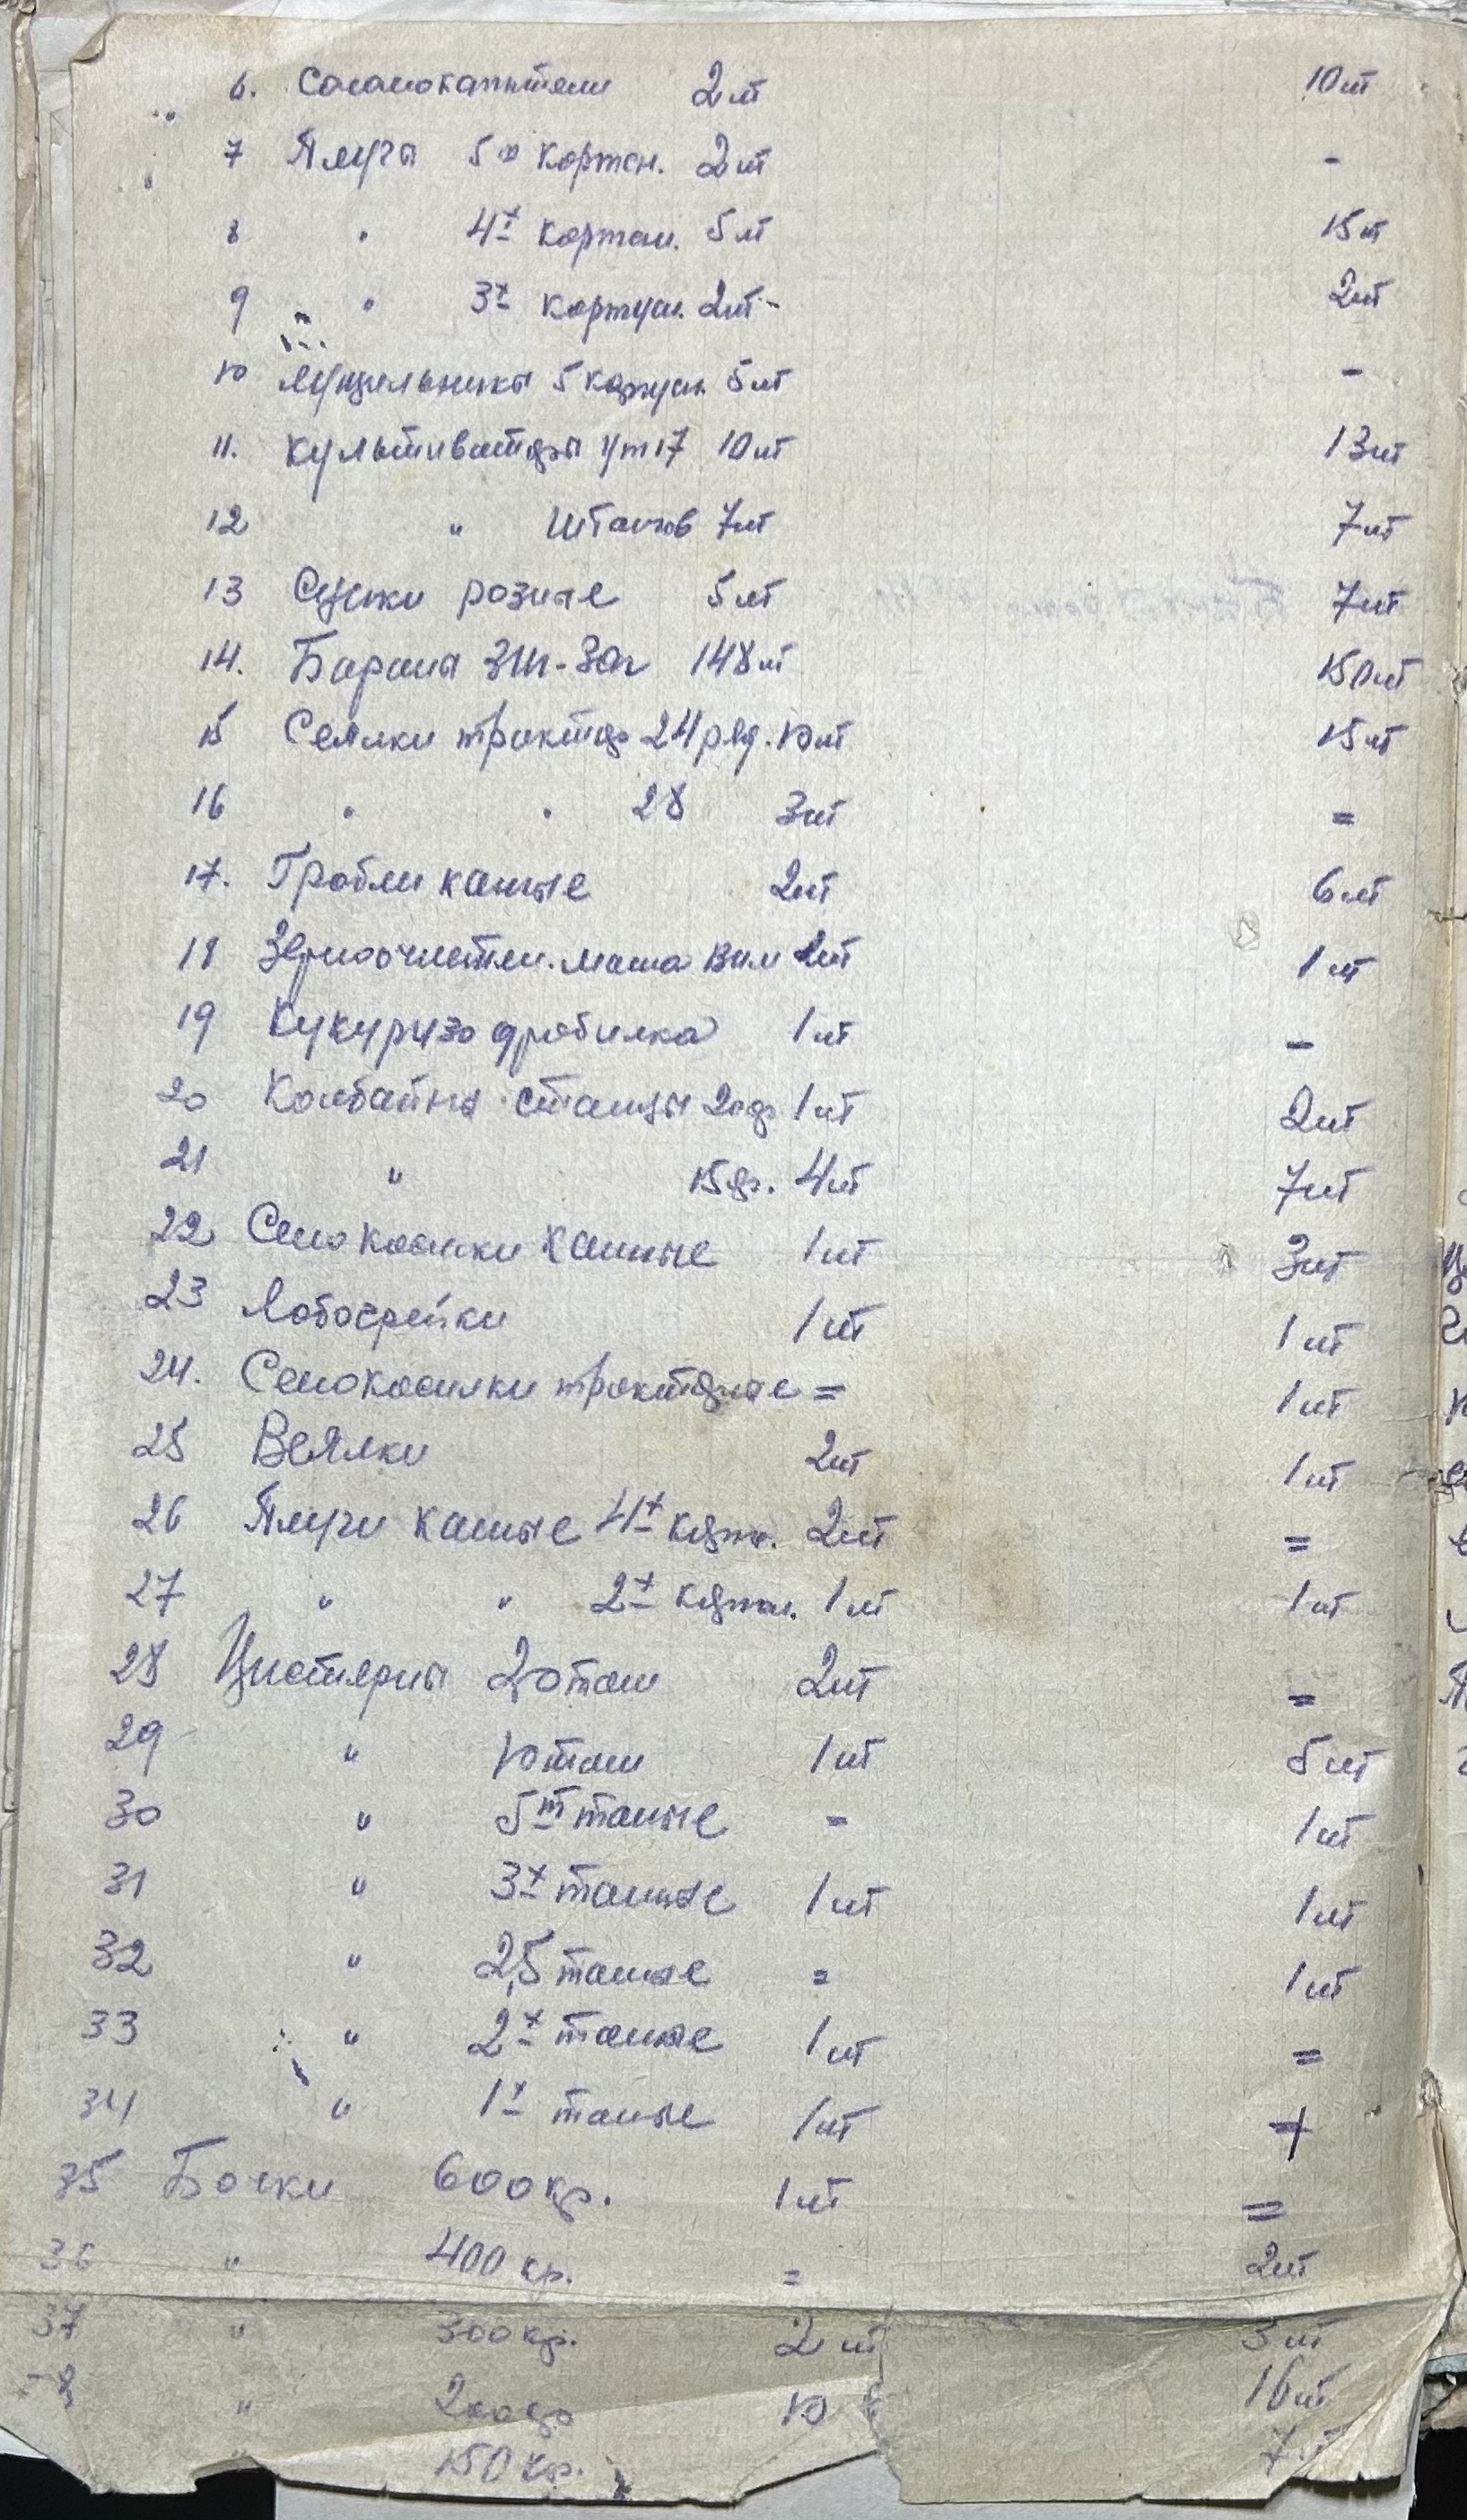 6. Соломокапнители 2шт 10шт
7 Плуги 5х корпсн. 2шт -
8 " 4х корпсн. 5шт 15шт
9 " 3х корпусн. 2шт- 2шт
10 Лущильники 5 корпусн. 5шт -
11. Культиваторы ут17 10шт 13шт
12 " Штангов 7шт 7шт
13 Сцепки розные 5шт 7шт
14. Бороны ЗИГ-Заг 148шт 150шт
15 Сеялки трактор 24ряд. 10шт 15шт
16 " " 28 3шт =
17. Грабли конные 2шт 6шт
18 Зерноочистен. маша Вим 2шт 1шт
19 Кукурузо дробилка 1шт -
20 Комбайны станцы 20фт 1шт 2шт
21 " 15ф. 4шт 7шт
22 Сенокосилки конные 1шт 3шт
23 Лобогрейки 1шт 1шт
24. Сенокосилки тракторные = 1шт
25 Веялки 2шт 1шт
26 Плуги конные 4х корпн. 2шт =
27 " " 2х корпсн. 1шт 1шт
28 Цистерны 20тон 2шт =
29 " 10тон 1шт 5шт
30 " 5ти тоные = 1шт
31 " 3х тонные 1шт 1шт
32 " 2,5 тоные = 1шт
33 " 2х тоные 1шт =
34 " 1х тоные 1шт +
35 Бочки 600кг. 1шт =
36 " 400кг. = 2шт
37 " 300кг. 2шт 3шт
" 200кг 10 16шт
" 150кг. 7шт